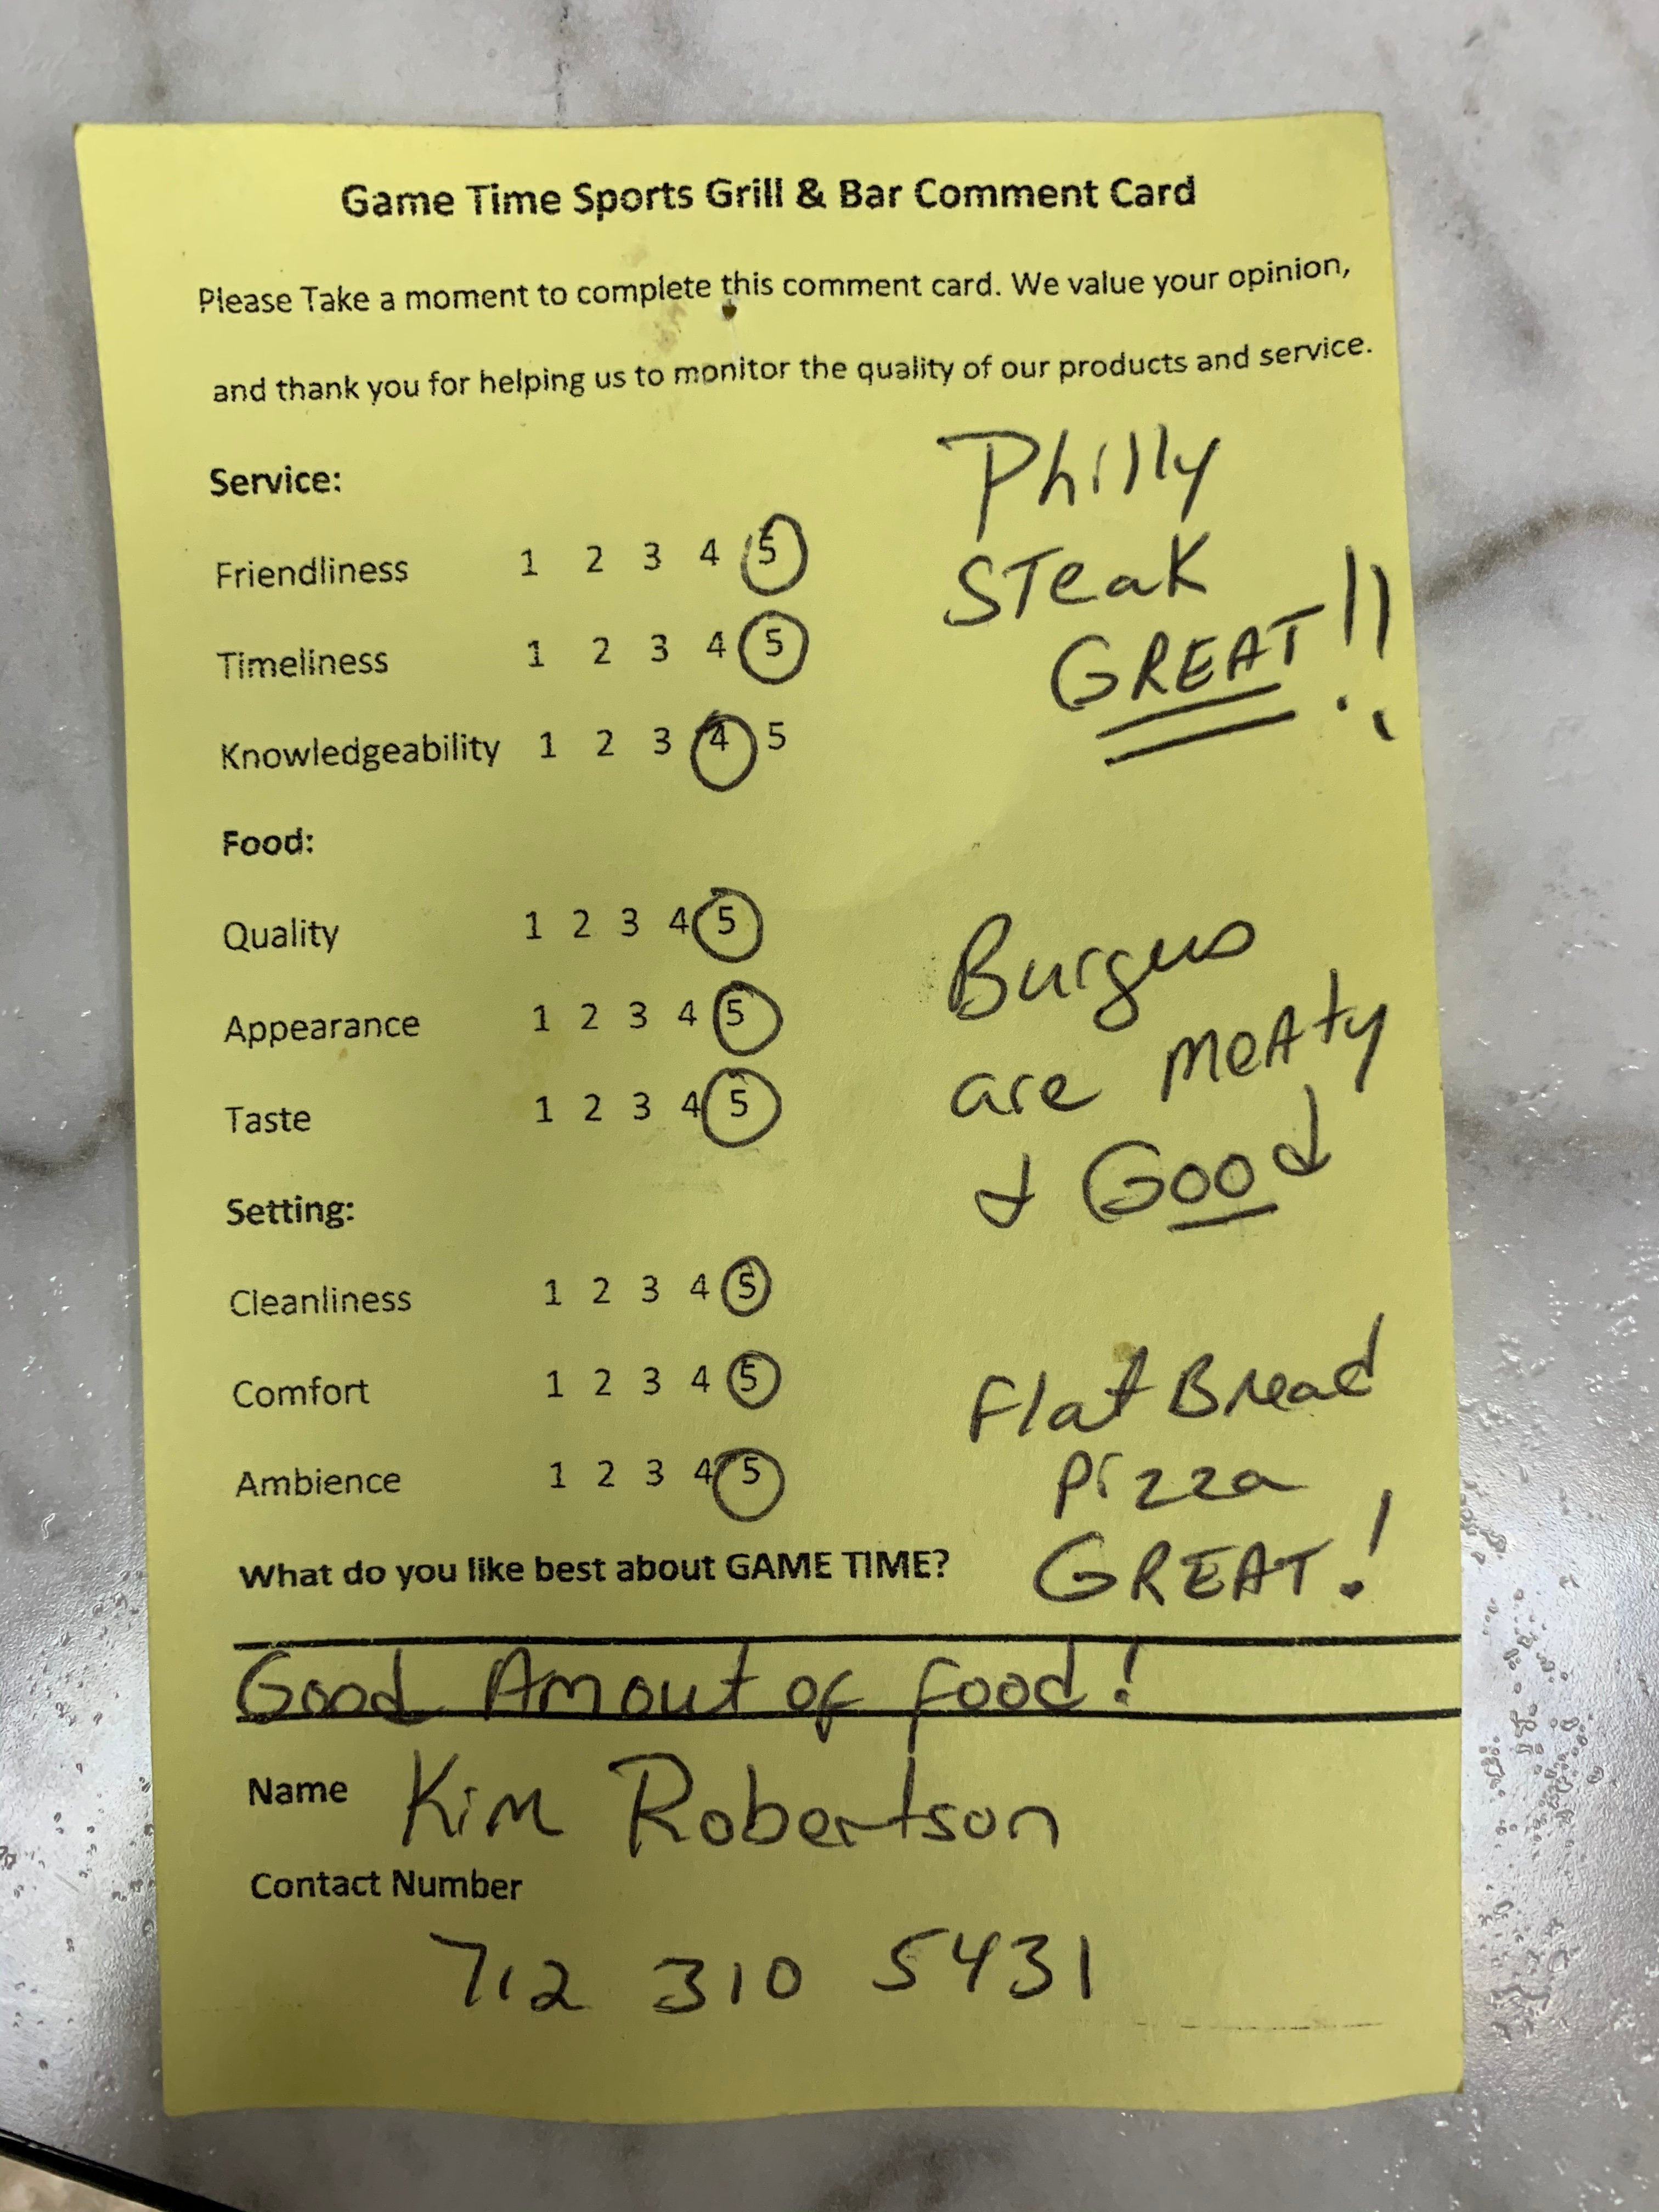 Game Time Sports Grill & Bar Comment Card
Please Take a moment to complete this comment card. We value your opinion,
and thank you for helping us to monitor the quality of our products and service.
Service:
Friendliness 1 2 3 4 5
Timeliness 1 2 3 4 5
Knowledgeability 1 2 3 4 5
Philly
Steak
GREAT!!
Food:
Quality 1 2 3 4 5
Appearance 1 2 3 4 5
Taste 1 2 3 4 5
Burgers
are meaty
& Good
Setting:
Cleanliness 1 2 3 4 5
Comfort 1 2 3 4 5
Ambience 1 2 3 4 5
Flat Bread
Pizza
GREAT!
What do you like best about GAME TIME?
Good Amout of food!
Name Kim Robertson
Contact Number
712 310 5431